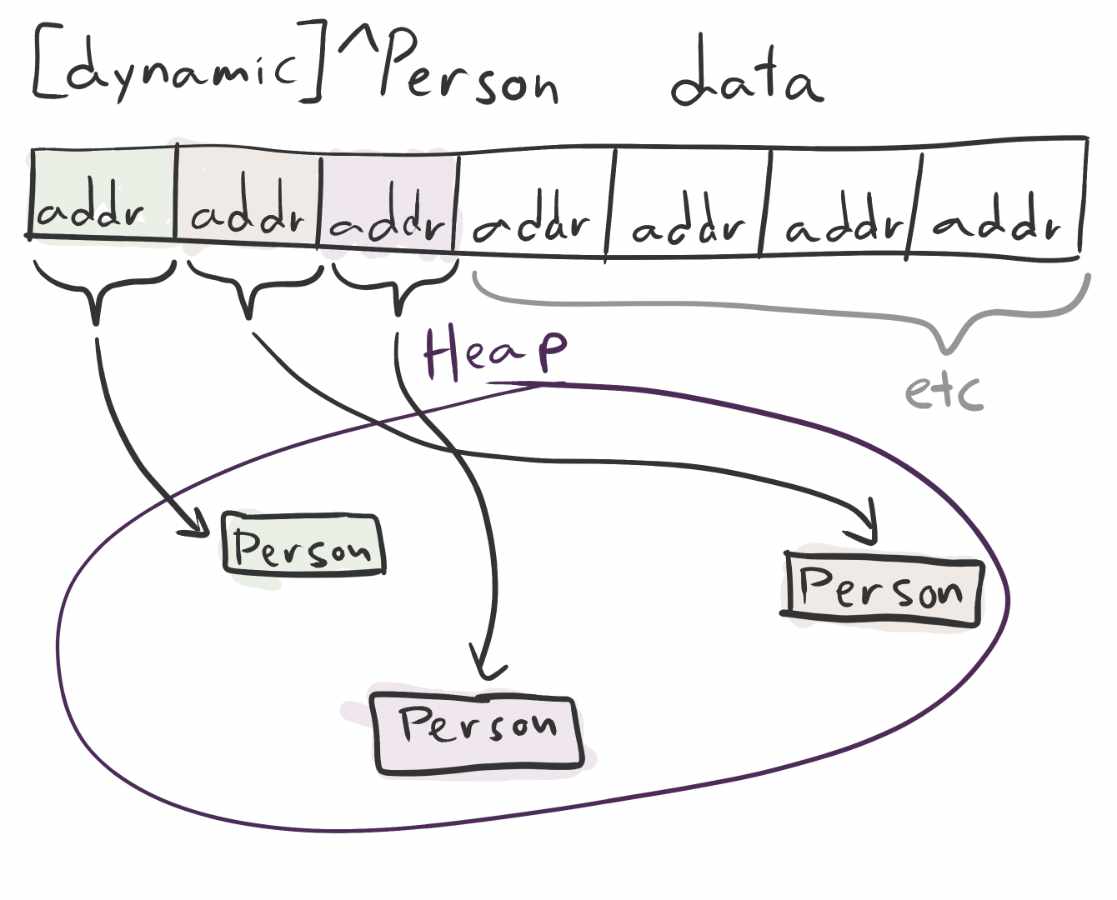 [dynamic]^Person data
addr addr addr addr addr addr addr
Heap
etc
Person
Person
Person